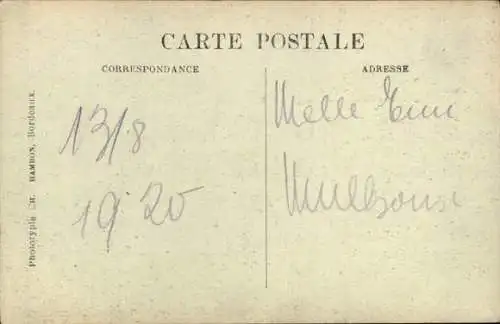 CARTE POSTALE
CORRESPONDANCE
ADRESSE
13/8
1920
Melle
Mulhouse
Phototypie Ch. HAMBON, Bordeaux.